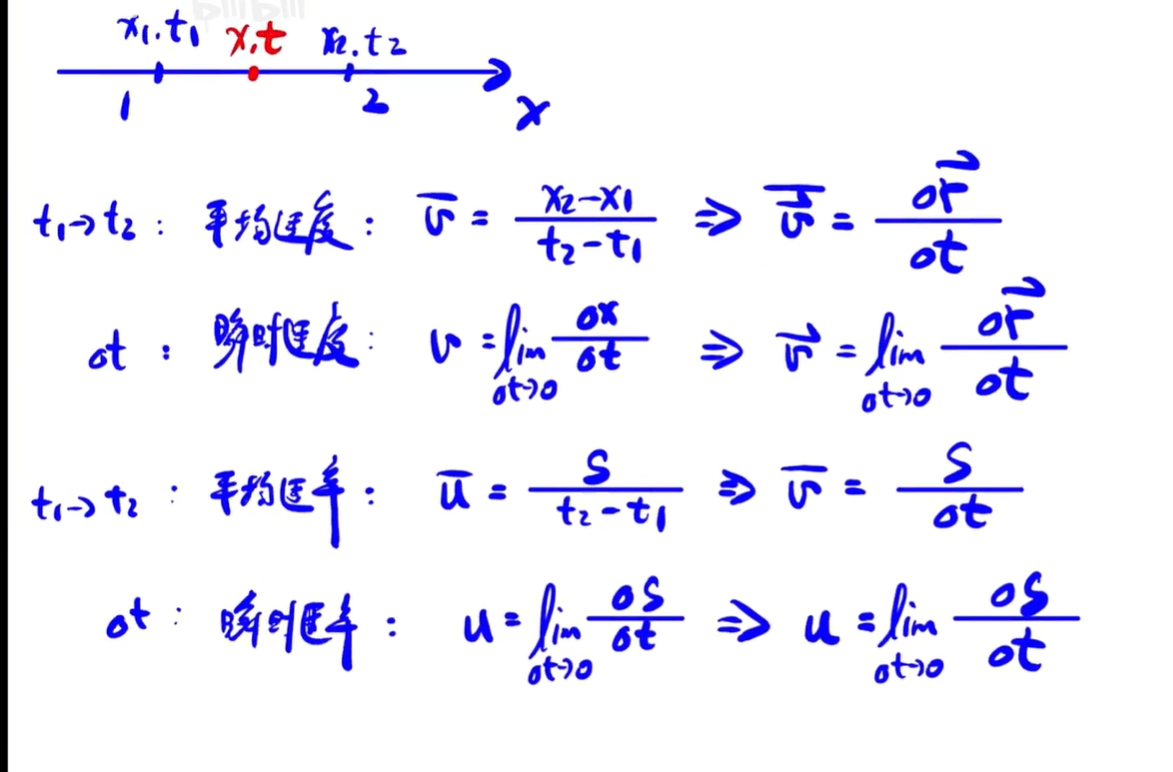 x₁.t₁ x,t x₂.t₂
1 2 x
t₁→t₂: 平均速度: v̅ = (x₂-x₁)/(t₂-t₁) ⇒ v⃗̅ = Δr⃗/Δt
Δt: 瞬时速度: v = lim Δt→0 Δx/Δt ⇒ v⃗ = lim Δt→0 Δr⃗/Δt
t₁→t₂: 平均速率: u̅ = S/(t₂-t₁) ⇒ v̅ = S/Δt
Δt: 瞬时速率: u = lim Δt→0 ΔS/Δt ⇒ u = lim Δt→0 ΔS/Δt